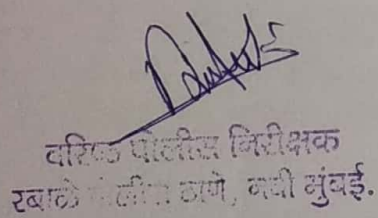 वरिष्ठ पोलीस निरीक्षक
रबाळे पोलीस ठाणे, नवी मुंबई.